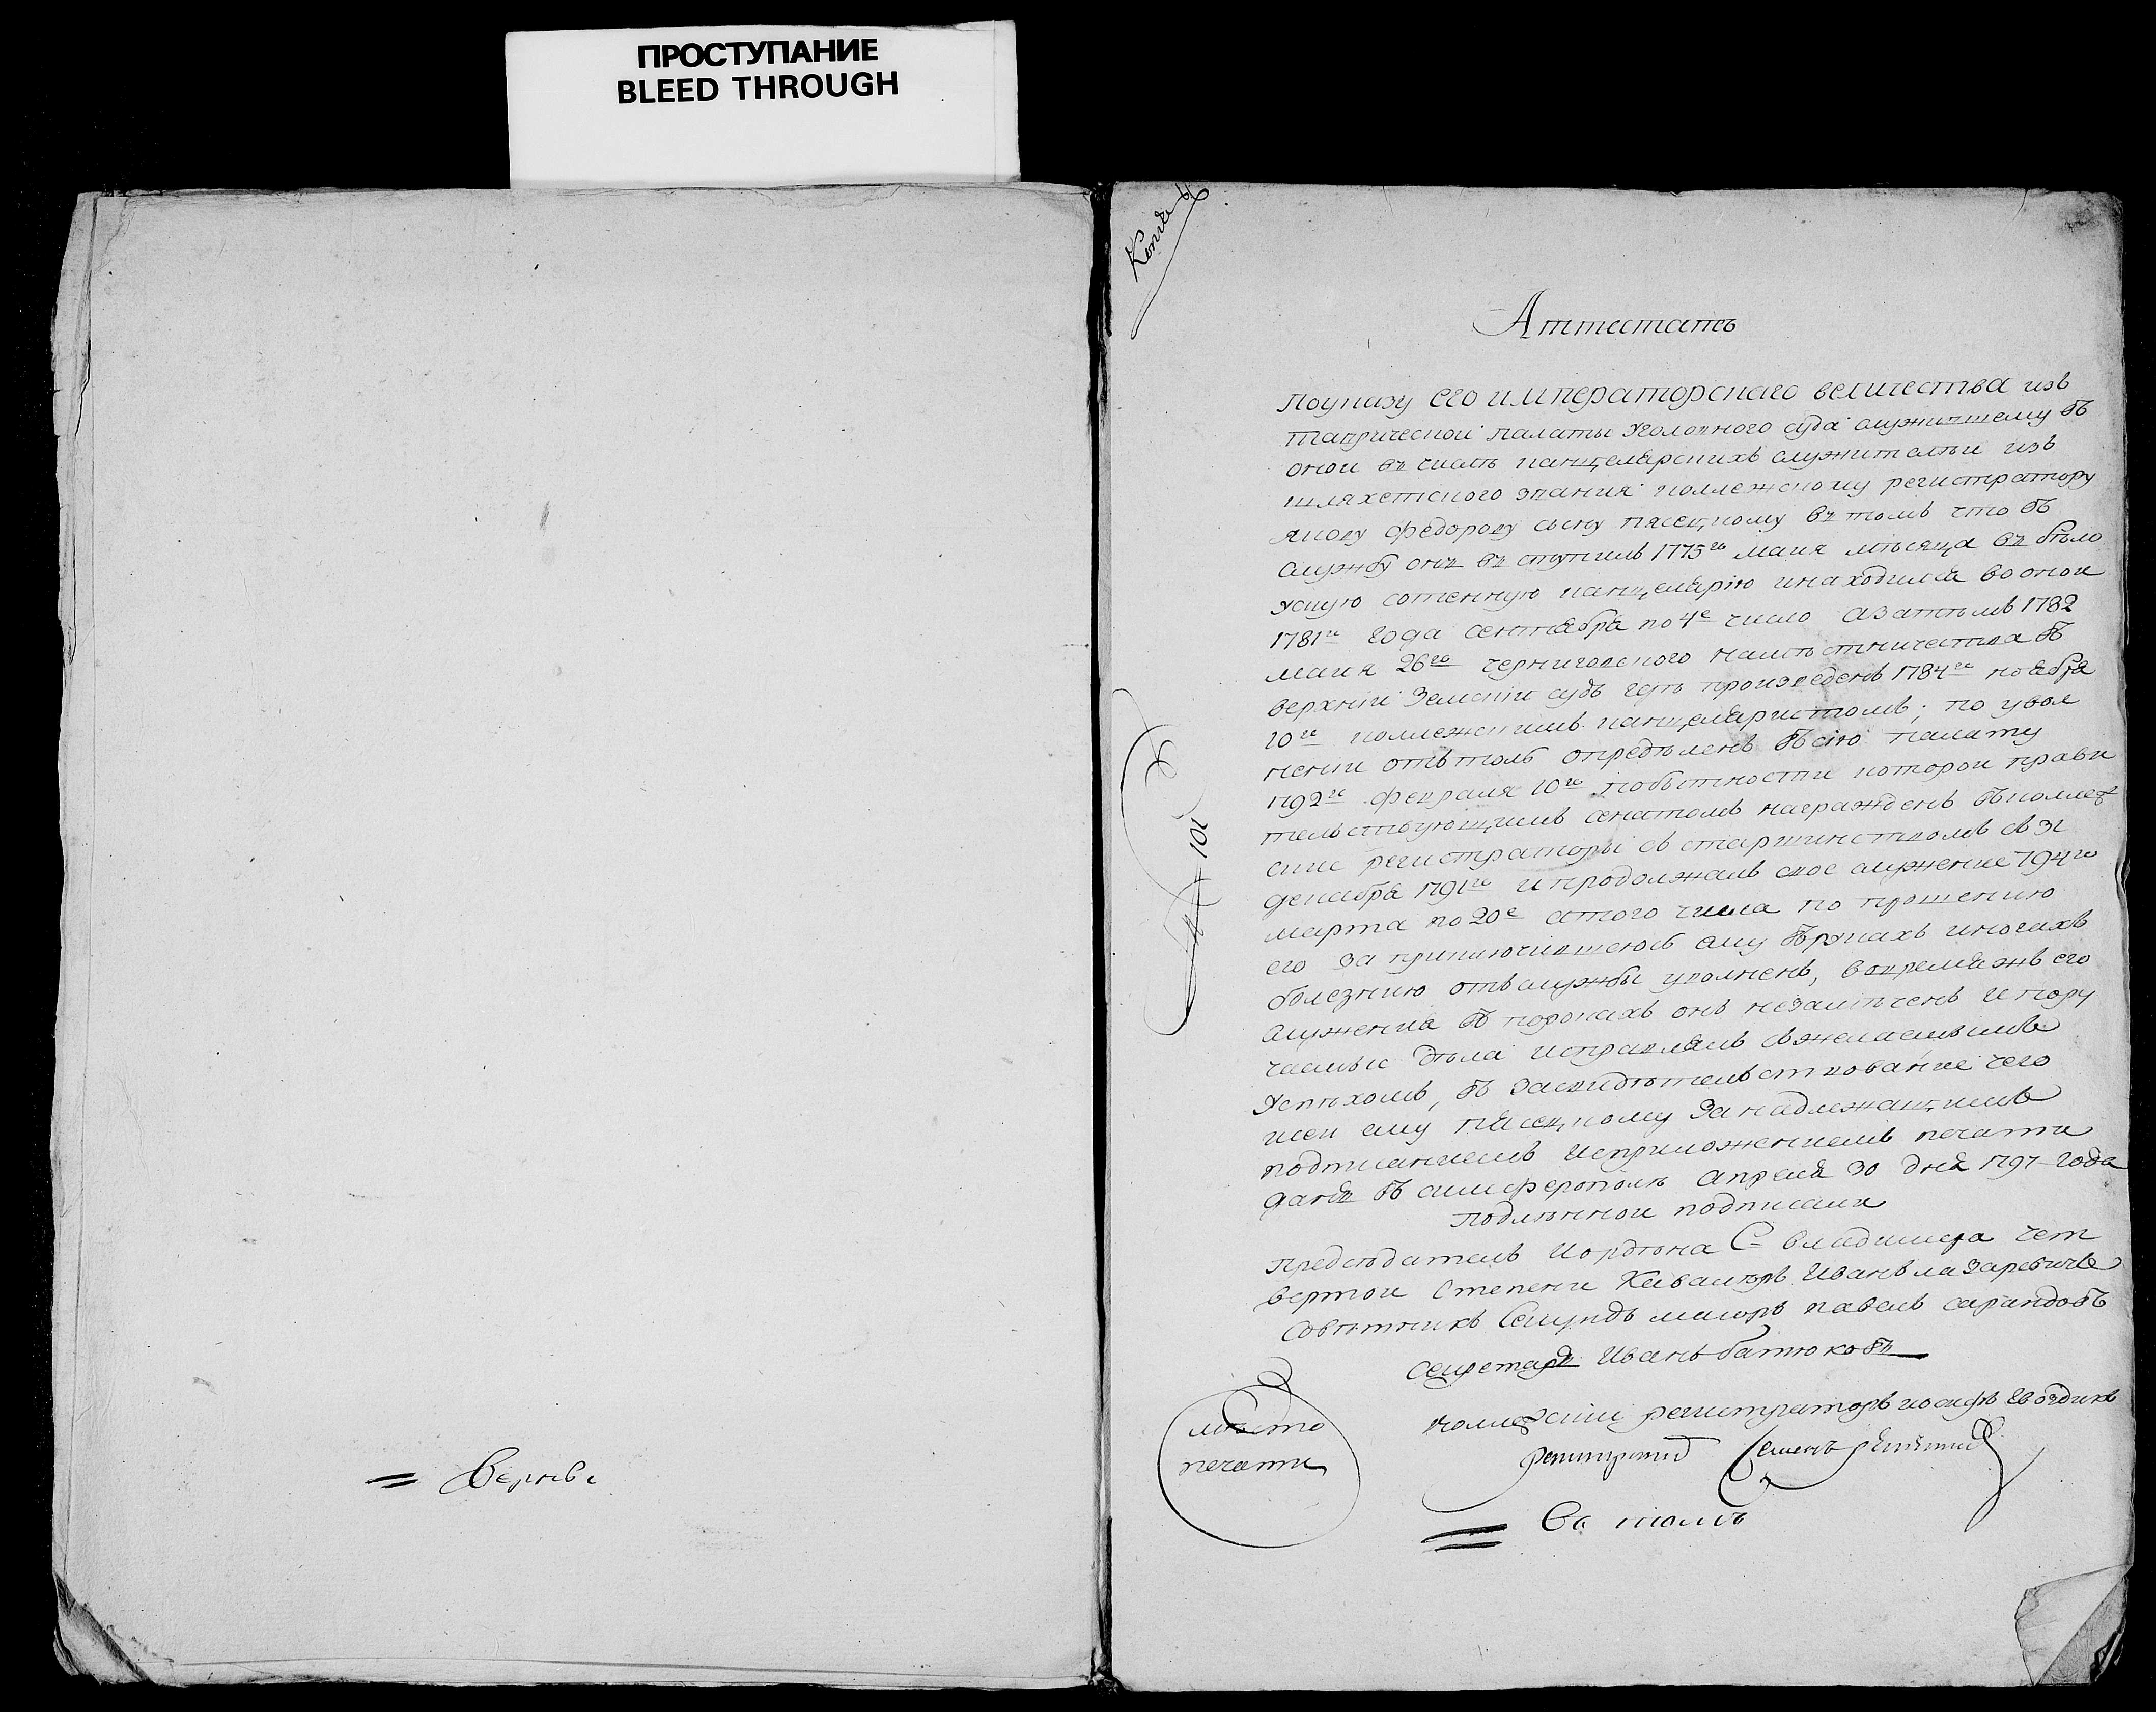 ПРОСТУПАНИЕ
BLEED THROUGH
Копія
Аттестатъ
По указу его императорскаго величества изъ
таврической палаты уголовного суда служившему въ
оной въ числѣ канцелярскихъ служителѣй изъ
шляхетского звания коллежскому регистратору
якову федорову сыну пясецкому въ томъ что въ
службу онъ въступилъ 1775го маия мѣсяца въ бѣло
ускую сотенную канцелярію и находился во оной
1781го года сентября по 4е число а затѣмъ 1782
маия 26го черниговского намѣстничества въ
верхній земскій судъ гдѣ произведенъ 1784го ноября
20го коллежскимъ канцеляристомъ; по увол
нении отътоль опредѣленъ въ сію палату
1792го февраля 10го побытности которой прави
тельствующимъ сенатомъ награжденъ въ коллеж
ские регистраторы съ старшинствомъ съ 31
декабря 1791го и продолжалъ свое служение 794го
марта по 20е а того числа по прошению
его за приключившеюсь ему въ рукахъ и ногахъ
болезнию отъ службы уволненъ, вовремяжъ его
служения въ порокахъ онъ незамѣченъ и пору
чаемые дѣла исправлялъ съ желаемымъ
успѣхомъ, въ засвидѣтельствование чего
сей ему пясецкому за надлежащимъ
подписаниемъ и с приложениемъ печати
данъ въ симферополѣ апреля 30 дня 1797 года
Подлѣнной подписали
Председатель и ордѣна С= владимера чет
вертой степени Кавалѣръ Иванъ лазаревичь
Советникъ Секундъ маиоръ павелъ сарандовъ
Секретарь Иванъ батюковъ
коллежский регистраторъ иосифъ Гвоздикъ
Семенъ
место
печати